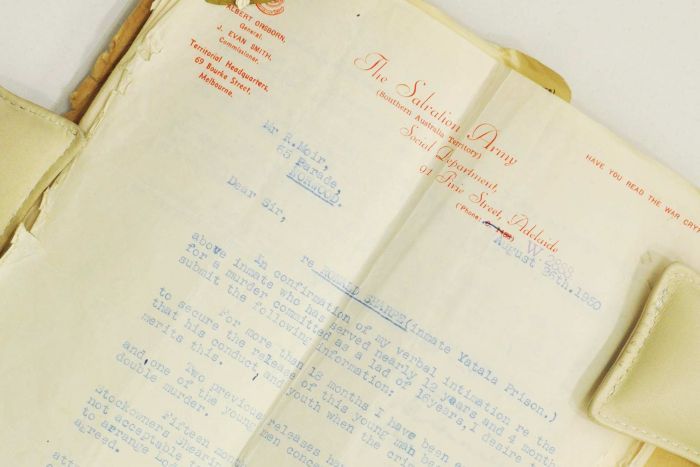 ALBERT ORSBORN,
General.
J. EVAN SMITH,
Commissioner.
Territorial Headquarters,
69 Bourke Street,
Melbourne.
The Salvation Army
(Southern Australia Territory)
Social Department,
91 Pirie Street, Adelaide
('Phone:
W 2268
HAVE YOU READ THE WAR CRY?
August 1950
Mr R.Moir,
65 Parade,
NORWOOD.
Dear Sir,
re SHARPE(inmate Yatala Prison.)
In confirmation of my verbal intimation re the
above inmate who has served nearly 12 years and 4 month
for a murder committed as a lad of 16years, I desire t
submit the following information:
For more than 18 months I have been e
to secure the release of this young man be
that his conduct and youth when the cri
merits this.
Two previous releases ha
and one of the young men conce
double murder.
Fifteen mont
Stockowners Shearing
not acceptable
to arrange
agreed.